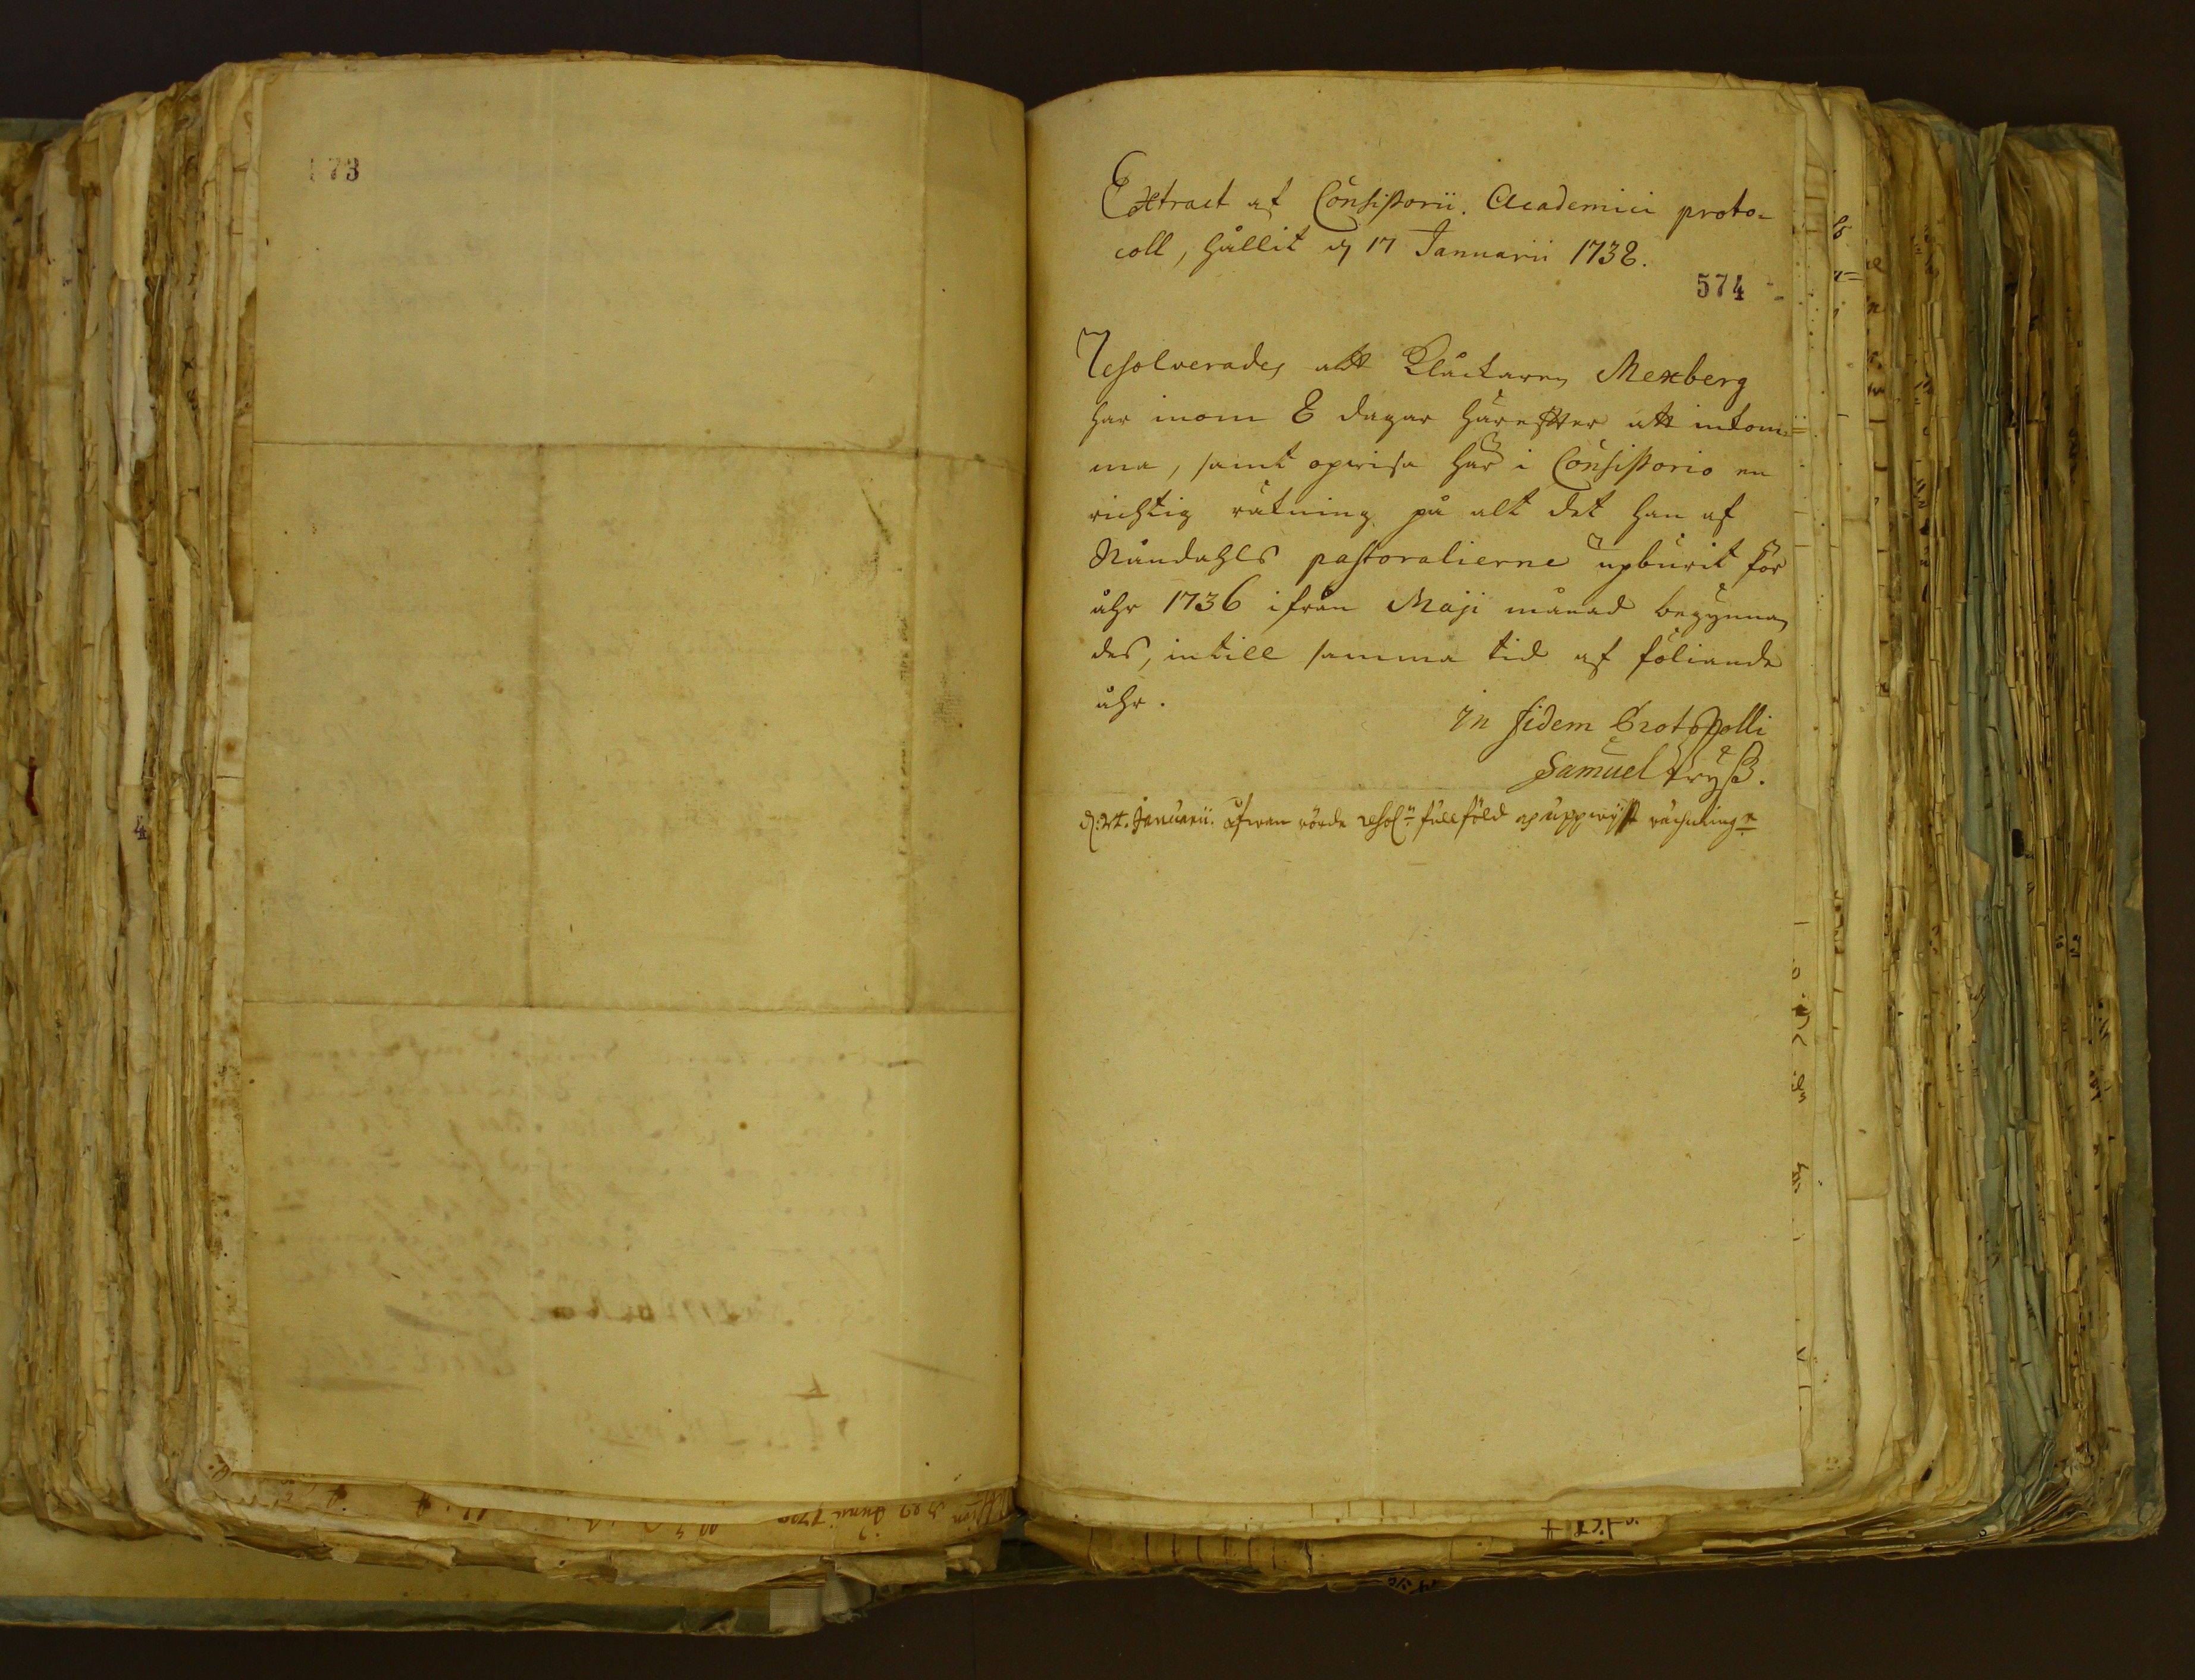 573
Extract af Consistorii Academici proto-
coll, hållit d 17 Januarii 1738.
574
Resolverades att Klåckaren Mexberg
har inom 8 dagar härefter att inkom-
ma, samt opwisa här i Consistorio en
richtig räkning på alt det han af
Nåndahls pastoralierne upburit för
åhr 1736 ifrån Maji månad begynnan
des, intill samma tid af föliande
åhr.
In fidem Protocolli
Samuel Pryss.
d. 24. Januarii. åfwan rörde resol:n fullföld och uppwyst rächning